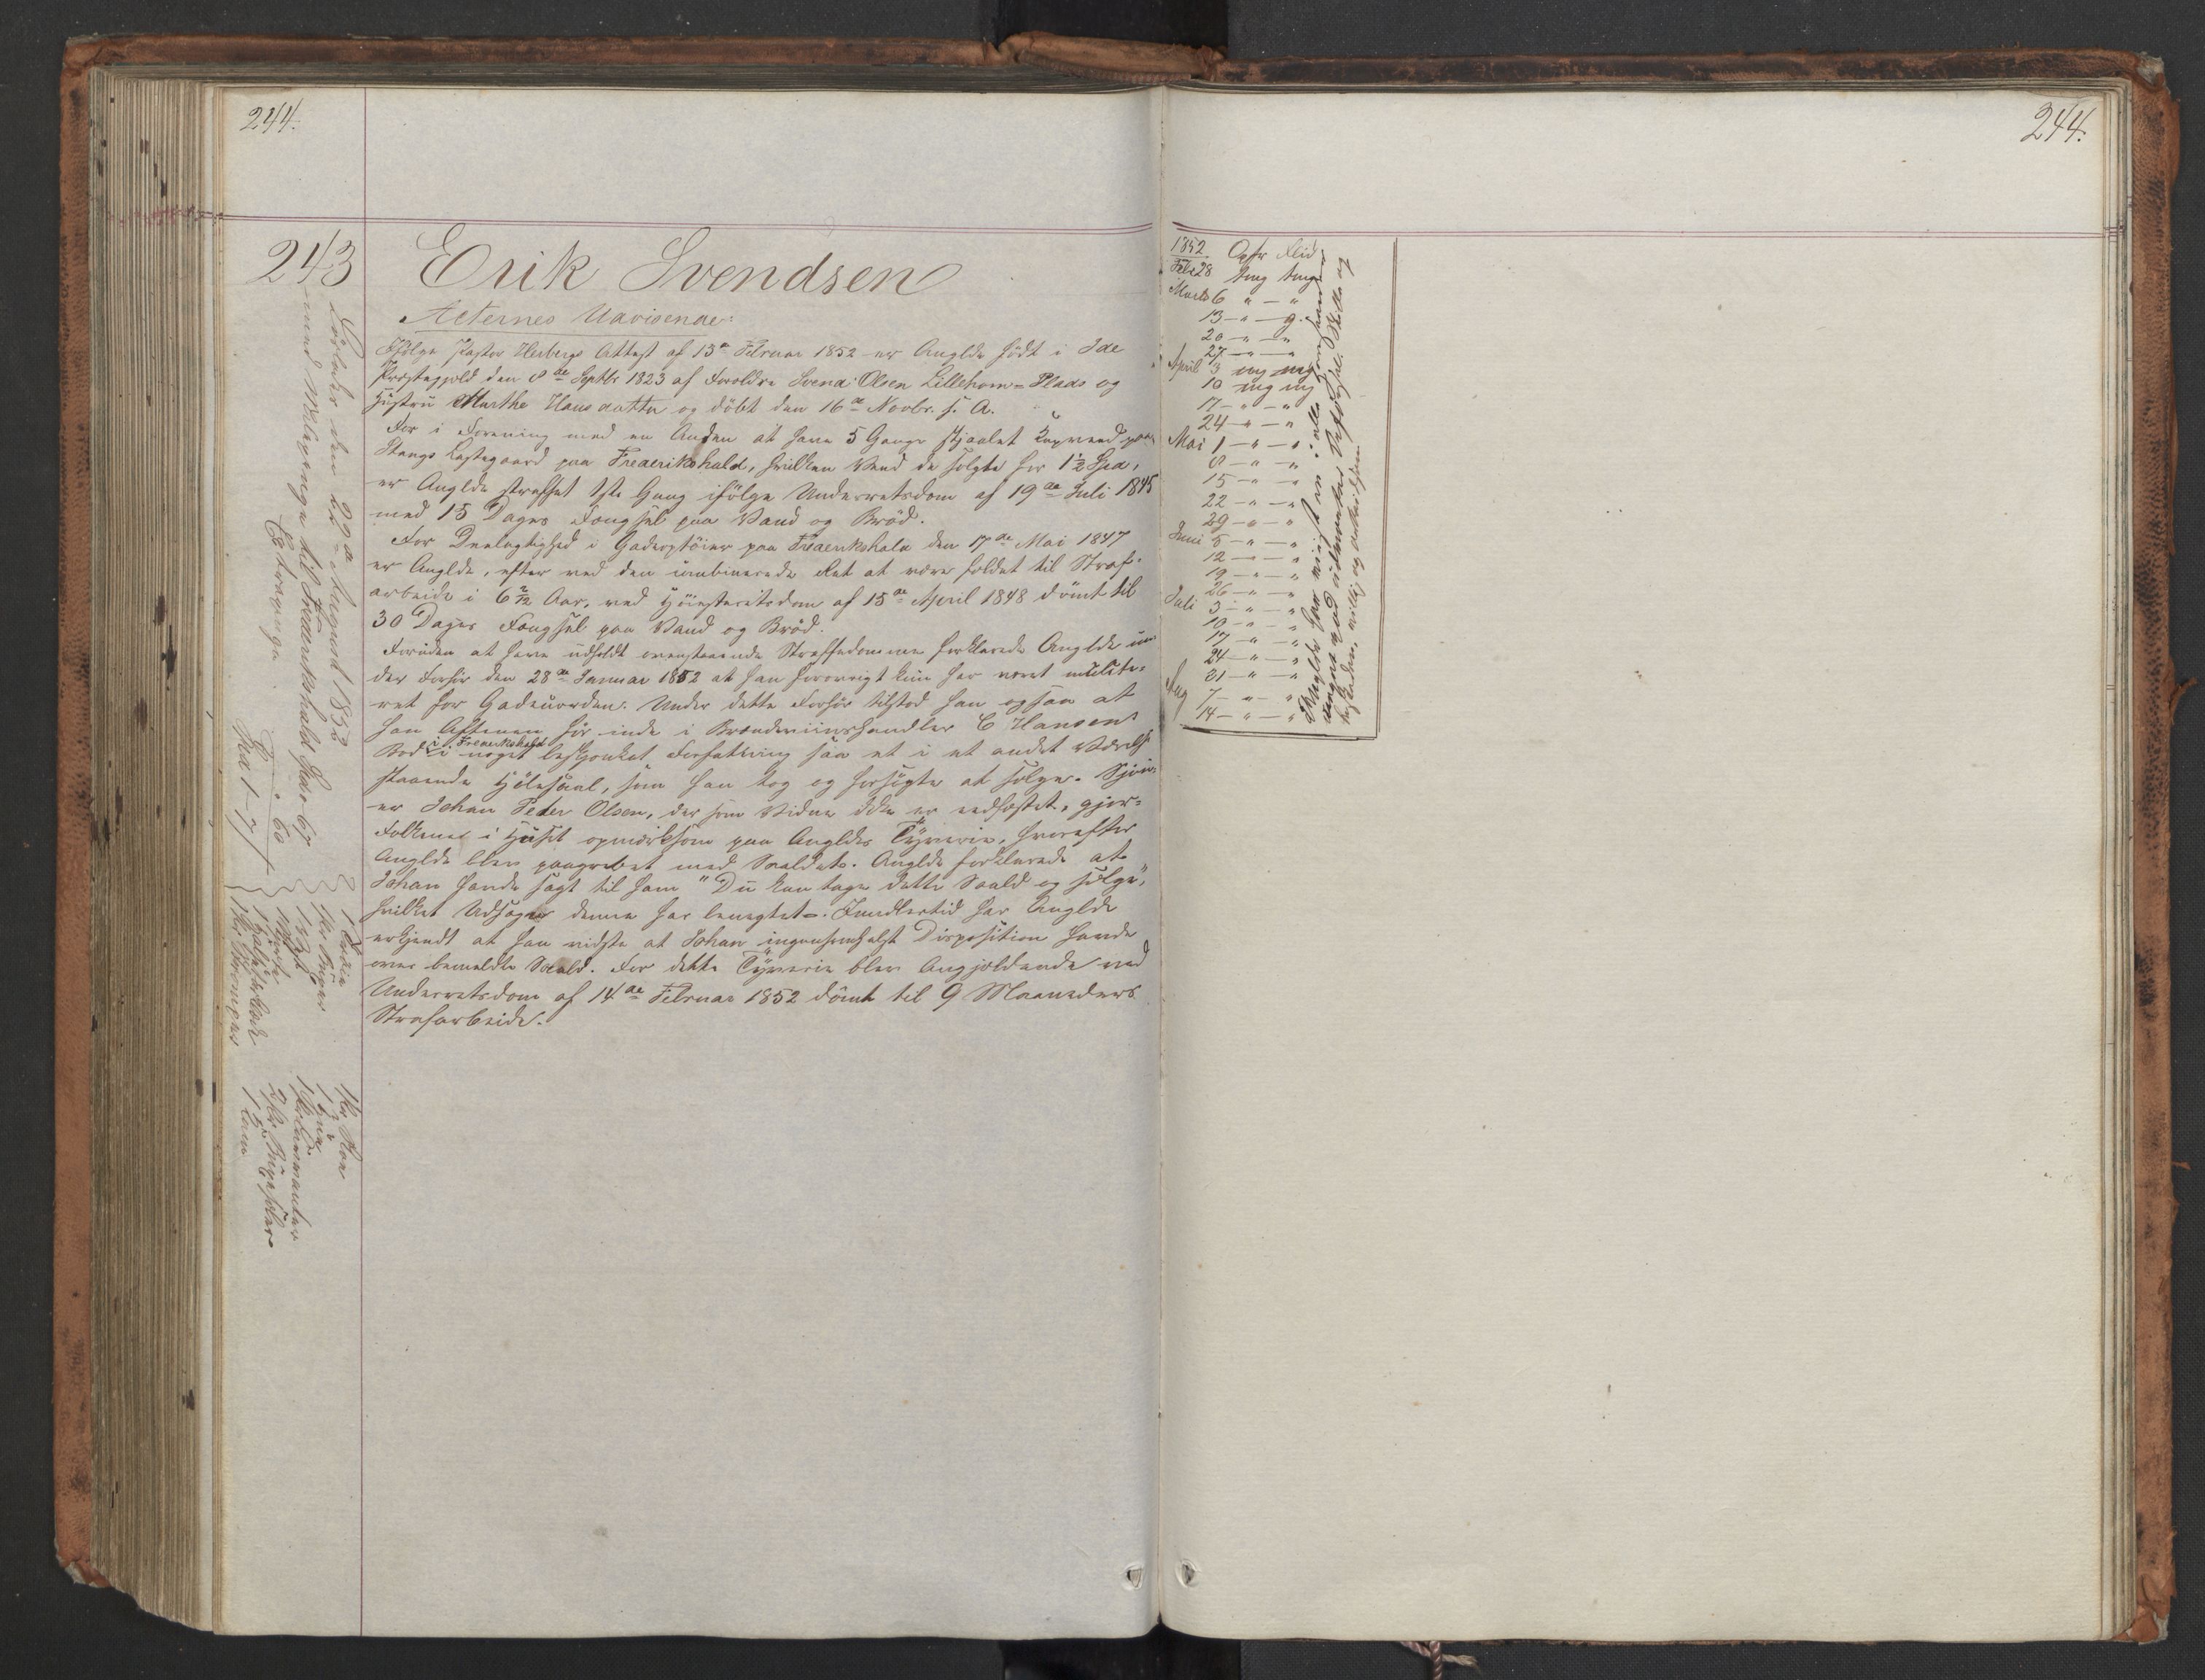 244.
244.
243
Erik Svendsen
Acternes Udvisende:
Ifölge Pastor Herbergs Attest af 13de Februar 1852 er Anglde födt i Ide
Præstegjeld den 8de Septbr 1823 af Forældre Svend Olsen Lilleham-Plads og
Hustru Marthe Hansdatter og döbt den 16de Novbr. s. A.
For i Forening med en Anden at have 5 Gange stjaalet Kapveed paa
Stangs Lastegaard paa Frederikshald, hvilken Veed de solgte for 1½ Spd,
er Anglde straffet 1ste Gang ifölge Underretsdom af 19de Juli 1845
med 15 Dages Fængsel paa Vand og Bröd.
For Deelagtighed i Gadeoptöier paa Frederikshald den 17de Mai 1847
er Anglde, efter ved den combinerede Ret at være fældet til Straf-
arbeide i 6 Aar, ved Höiesteretsdom af 15de April 1848 dömt til
30 Dages Fængsel paa Vand og Bröd.
Foruden at have udholdt ovenstaaende Straffedomme forklarede Anglde un-
der Forhör den 28de Januar 1852 at han forövrigt kun har været mulcte-
ret for Gadeuorden. Under dette Forhör tilstod han ogsaa at
han Aftenen för inde i Brændeviinshandler C Hansens
Bod i Frederikshald i noget beskjenket Forfatning saa et i et andet Værelse
staaende Hölesaal, som han tog og forsögte at sælge. Skjön-
er Johan Peder Olsen, der som Vidne ikke er eedfæstet, gjor-
Folkene i Huset opmærksom paa Angldes Tyverie, hvorefter
Anglde blev paagrebet med Saaldet. Anglde forklarede at
Johan havde sagt til ham "Du kan tage dette Saald og sælge",
hvilket Udsagn denne har benegtet. Imidlertid har Anglde
erkjendt at han vidste at Johan ingensomhelst Disposition havde
over bemeldte Saald. For dette Tyverie blev Angjældende ved
Underretsdom af 14de Februar 1852 dömt til 9 Maaneders
Strafarbeide.
Löslades den 22de August 1852
med Reisepenge til Frederikshald Spd. - 67
Extrapenge - 60
Spd 1 - 7
1 Vest
1 Halstörklæde
1 Lue
1852 Opfr Flid
Febr 28 tmg tmg
Marts 6 " — "
13 — " — g.
20 — " — "
27 — " — "
April 3 mg mg
10 mg mg
17 — " — "
24 — " — "
Mai 1 — " — "
8 — " — "
15 — " — "
22 — " — "
29 — " — "
Juni 5 — " — "
12 — " — "
19 — " — "
26 — " — "
Juli 3 — " — "
10 — " — "
17 — " — "
24 — " — "
31 — " — "
Aug 7 — " — "
14 — " — "
Anglde har viist en